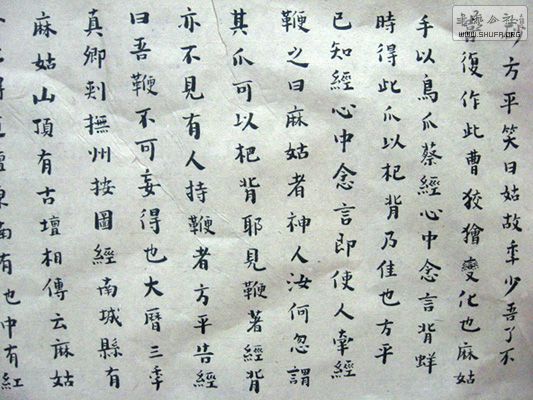 方平笑曰姑故年少吾了不
復作此曹狡獪變化也麻姑
手以鳥爪蔡經心中念言背蛘
時得此爪以杷背乃佳也方平
已知經心中念言即使人牽經
鞭之曰麻姑者神人汝何忽謂
其爪可以杷背耶見鞭著經背
亦不見有人持鞭者方平告經
曰吾鞭不可妄得也大曆三年
真卿刺撫州按圖經南城縣有
麻姑山頂有古壇相傳云麻姑
壇東南有池中有紅
WWW.SHUFA.ORG